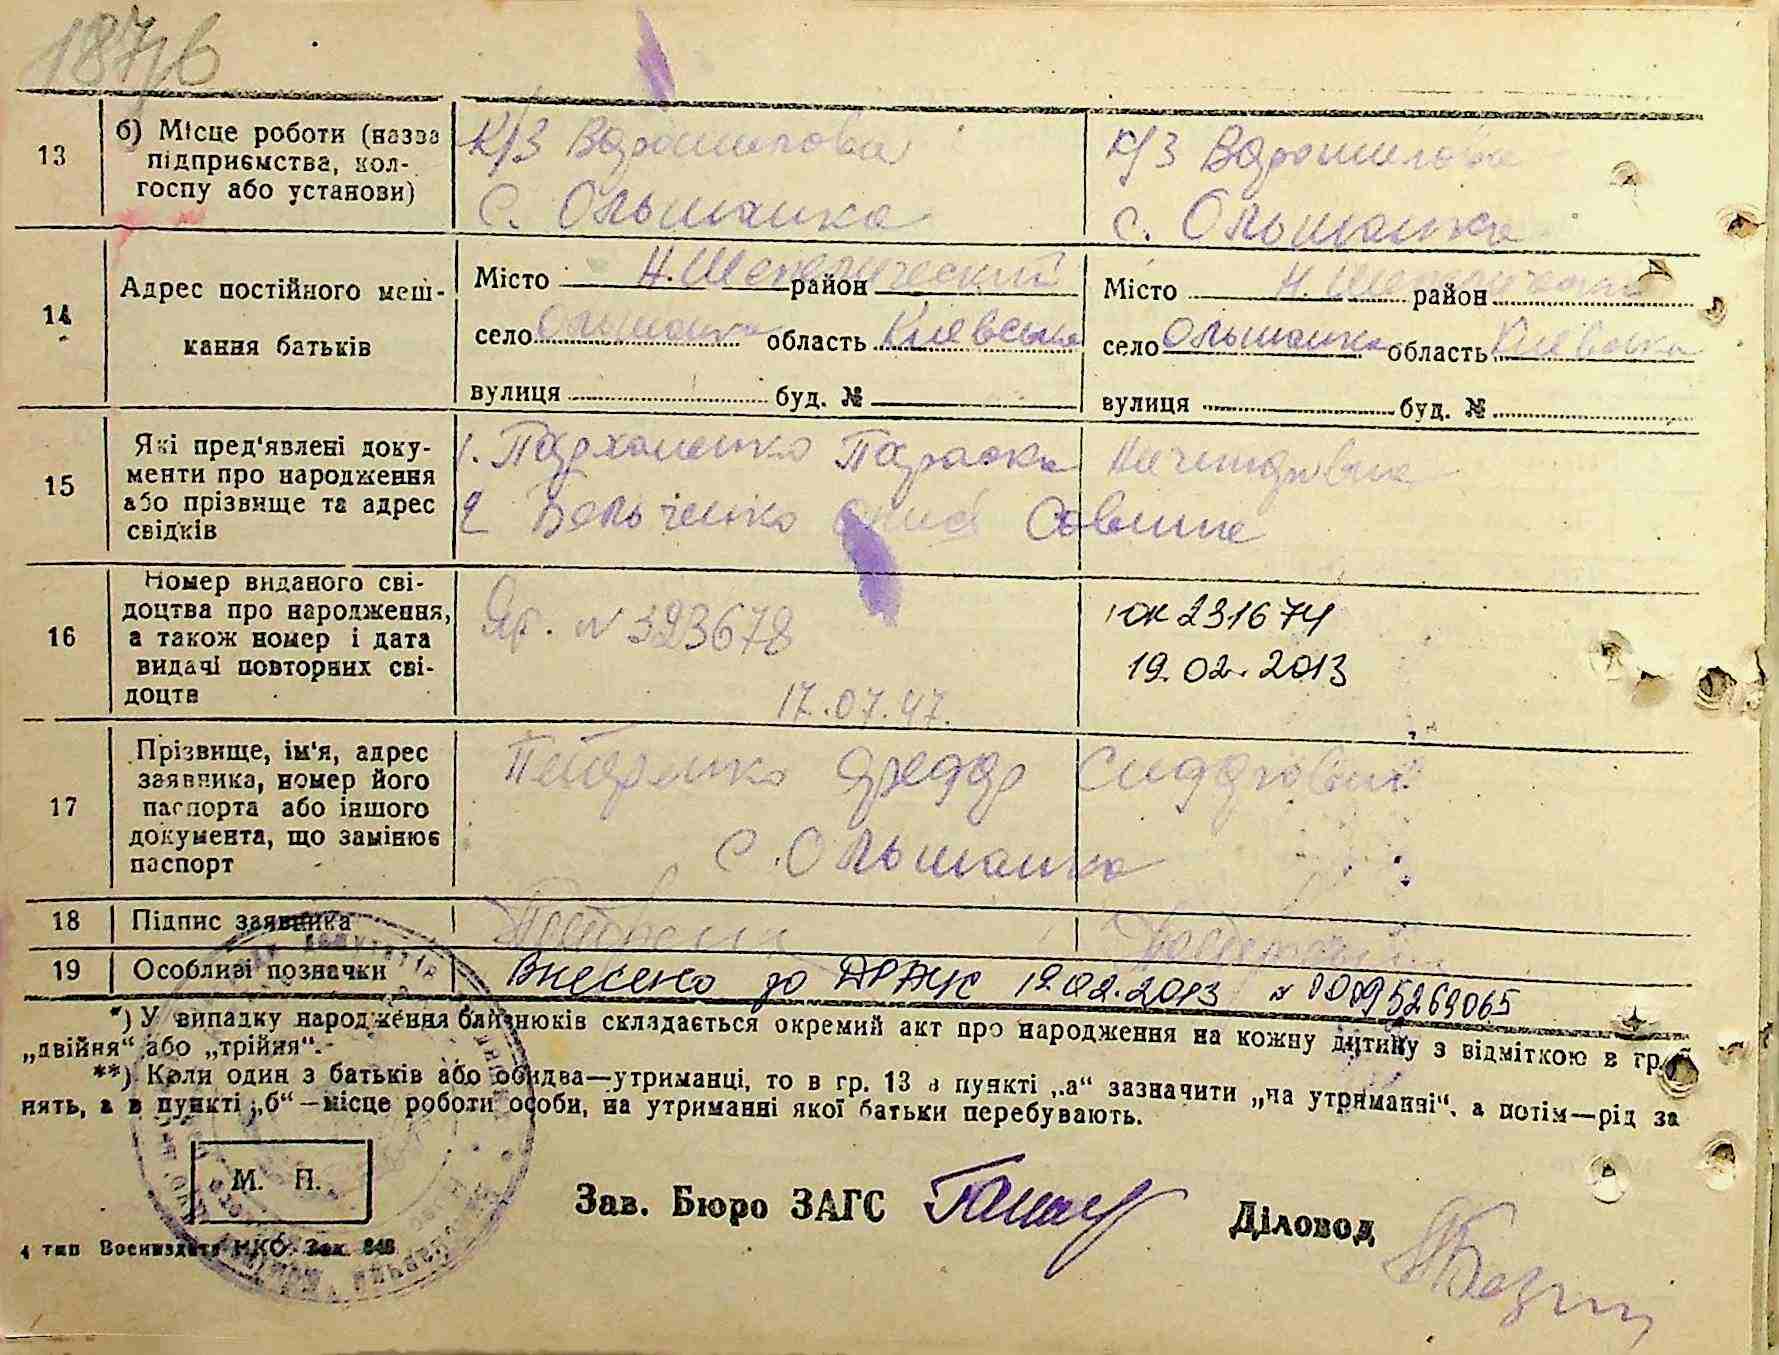 187/в
13 б) Місце роботи (назва підприємства, колгоспу або установи)
К/З Ворошилова
с. Ольшанка
К/З Ворошилова
с. Ольшанка
14 Адрес постійного мешкання батьків
Місто Н. Шепелический район
село Ольшанка область Киевська
вулиця буд. №
Місто Н. район
село Ольшанка область Киевська
вулиця буд. №
15 Які пред'явлені документи про народження або прізвище та адрес свідків
1. Пархоменко Параска
2 Бельченко Совшна
16 Номер виданого свідоцтва про народження, а також номер і дата видачі повторних свідоцтв
N 323678
17.07.47.
231674
19.02.2013
17 Прізвище, ім'я, адрес заявника, номер його паспорта або іншого документа, що замінює паспорт
с. Ольшанка
18 Підпис заявника
19 Особливі позначки
Внесено до ДРАЦС 19.02.2013 № 00095269065
*) У випадку народження близнюків складається окремий акт про народження на кожну дитину з відміткою в гр.
„двійня“ або „трійня“.
**) Коли один з батьків або обидва—утриманці, то в гр. 13 в пункті „а“ зазначити „на утриманні“, а потім—рід за
нять, а в пункті „б“—місце роботи особи, на утриманні якої батьки перебувають.
М. П.
Зав. Бюро ЗАГС
Діловод
4 тип Воениздата НКО. Зак. 848